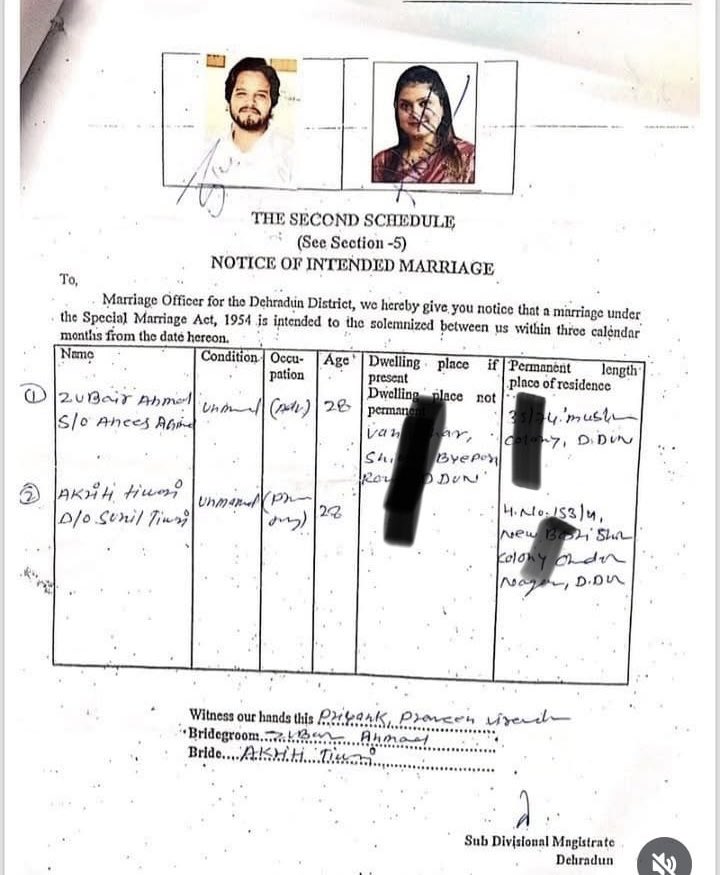 THE SECOND SCHEDULE
(See Section -5)
NOTICE OF INTENDED MARRIAGE
To,
Marriage Officer for the Dehradun District, we hereby give you notice that a marriage under
the Special Marriage Act, 1954 is intended to the solemnized between us within three calendar
months from the date hereon.
Name
Condition
Occu-
pation
Age
Dwelling place if
present
Dwelling place not
Permanent length
place of residence
① Zubair Ahmad
S/o Anees
28
D.Dun
② Akriti Tiwari
D/o Sunil Tiwari
28
Colony
D.Dun
Witness our hands this Priyank, Praveen
Bridegroom....Zubair Ahmad
Bride....Akriti Tiwari
Sub Divisional Magistrate
Dehradun